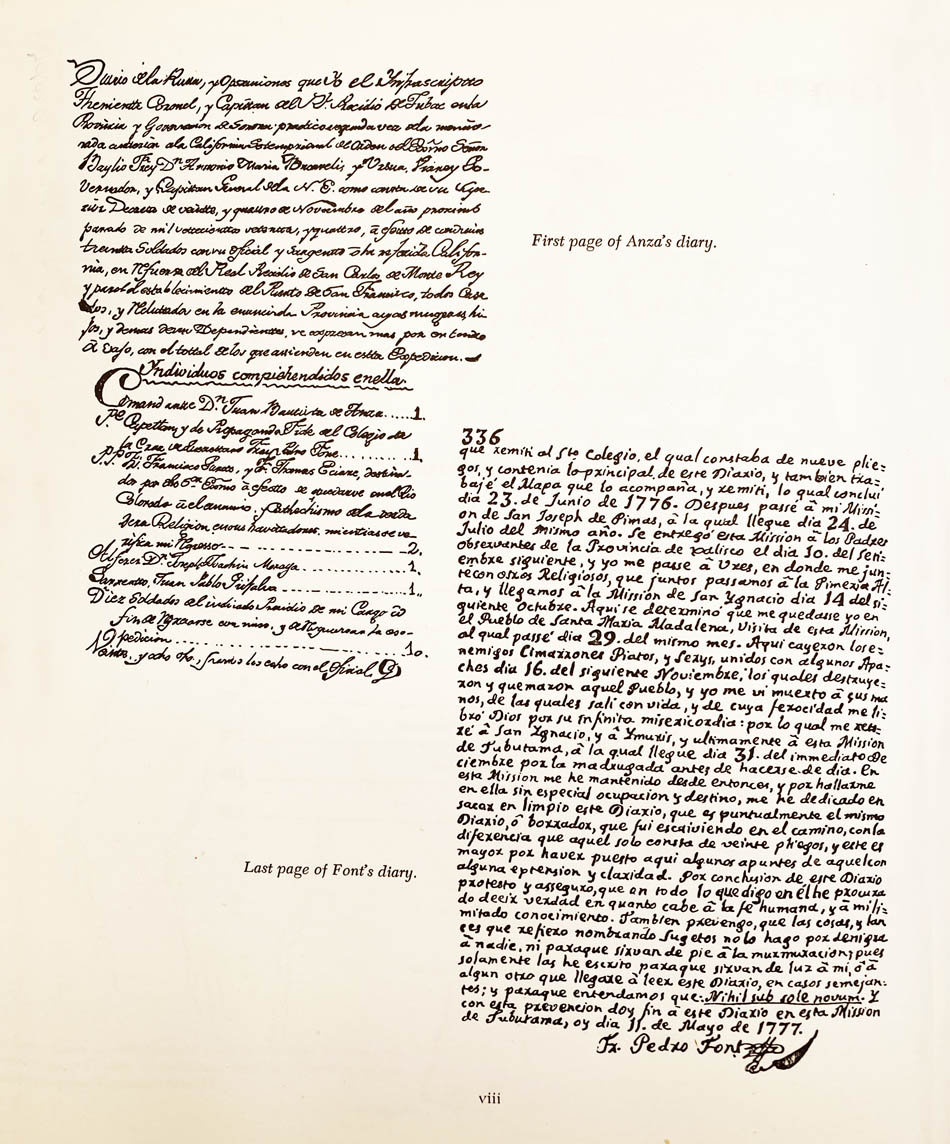 Diario de la Ruta, y Operaciones que Yo el Ynfrascripto
Theniente Coronel, y Capitan del Rl. Presidio de Tubac en la
Provincia y Governacion de Sonora: practico segunda vez de la
a la California Septemptrional de Orden del Exmo Señor
Baylio Frey Dn Antonio Maria Bucareli, y Ursua, Virrey Go-
vernador, y Capitan General de la N. E. como consta de su
Decreto de veinte, y quattro de Noviembre del año proximo
pasado de mil setecientos setenta, y quattro, a efecto de conducir
treinta Soldados con su Oficial y Sargento a la referida Califor-
nia, en Refuerzo del Real Presidio de San Carlos de Monte Rey
y para el establecimiento del Puerto de San Francisco, todos Casa
dos, y Reclutados en la enunciada Provincia cuyas mugeres hi-
jos, y demas de sus Dependientes, se expresan mas por entendido
a vajo, con el tottal de los que ascienden en estta Expedicion.
Yndividuos comprehendidos en ella.
Comandante Dn Juan Bauttista de Anza.....1.
Pe Capellan y de Propaganda Fide del Colegio de
la Cruz de Querettaro Fray Pedro Font...1
P.P. Fr. Francisco Garces, y Fr. Thomas Eixarc, destina-
dos por dho a efecto de quedarse en el Rio
Colorado a el y Cathechismo de la verda
dera Religion en sus havitadores, mientras se ve-
rifica mi Regresso--............2.
Alferez Dn. Joseph Joachin Moraga........1.
Sargento, Juan Pablo Grijalva............1.
Diez Soldados del indicado Presidio de mi Cargo a
fin de Regresarse con migo, y de
pedicion.............10.
Veinte, y ocho

First page of Anza's diary.

336
que remiti al Sto Colegio, el qual constaba de nueve plie-
gos, y contenia lo principal de este Diario, y tambien tra-
bajé el Mapa que lo acompaña, y remiti, lo qual conclui
dia 23. de Junio de 1776. Despues passé à mi Missi-
on de San Joseph de Pimas, à la qual llegue dia 24. de
Julio del mismo año. Se entregó esta Mission à los Padres
observantes de la Provincia de Xalisco el dia 10. del Seti-
embre siguiente, y yo me passe à Ures, en donde me jun-
te con otros Religiosos, que juntos passamos à la Pimeria Al-
ta, y llegamos à la Mission de San Ygnacio dia 14 del si-
guiente Octubre. Aqui se determinó que me quedasse yo en
el Pueblo de Santa Maria Madalena, Visita de esta Mission,
al qual passé dia 29. del mismo mes. Aqui cayeron los e-
nemigos Cimarrones Piatos, y Serys, unidos con algunos Apa-
ches dia 16. del siguiente Noviembre, los quales destruye-
ron y quemaron aquel Pueblo, y yo me vi muerto à sus ma
nos, de las quales sali con vida, y de cuya ferocidad me li-
bró Dios por su infinita misericordia: por lo qual me reti-
ré à San Ygnacio, y à Ymuris, y ultimamente à esta Mission
de Tubutama, à la qual llegue dia 31. del immediato De
ciembre por la madrugada antes de hacerse de dia. En
esta Mission me he mantenido desde entonces, y por hallarme
en ella sin especial ocupacion y destino, me he dedicado en
sacar en limpio este Diario, que es puntualmente el mismo
Diario, ó borrador, que fui escriviendo en el camino, con la
diferencia que aquel solo consta de veinte pliegos, y este es
mayor por haver puesto aqui algunos apuntes de aquel con
alguna eptension y claridad. Por conclusion de este Diario
protesto y asseguro, que en todo lo que digo en él he procura
do decir verdad en quanto cabe à la fe humana, y à mi li-
mitado conocimiento. Tambien prevengo, que las cosas, y lan
ces que refiero nombrando sugetos no lo hago por denigra
à nadie, ni paraque sirvan de pie à la murmuracion; pues
solamente las he escrito paraque sirvan de luz à mi, ó à
algun otro que llegare à leer este Diario, en casos semejan-
tes; y paraque entendamos que: Nihil sub sole novum. Y
con esta prevencion doy fin à este Diario en esta Mission
de Tubutama, oy dia 11. de Mayo de 1777.
Fr. Pedro Font

Last page of Font's diary.

viii